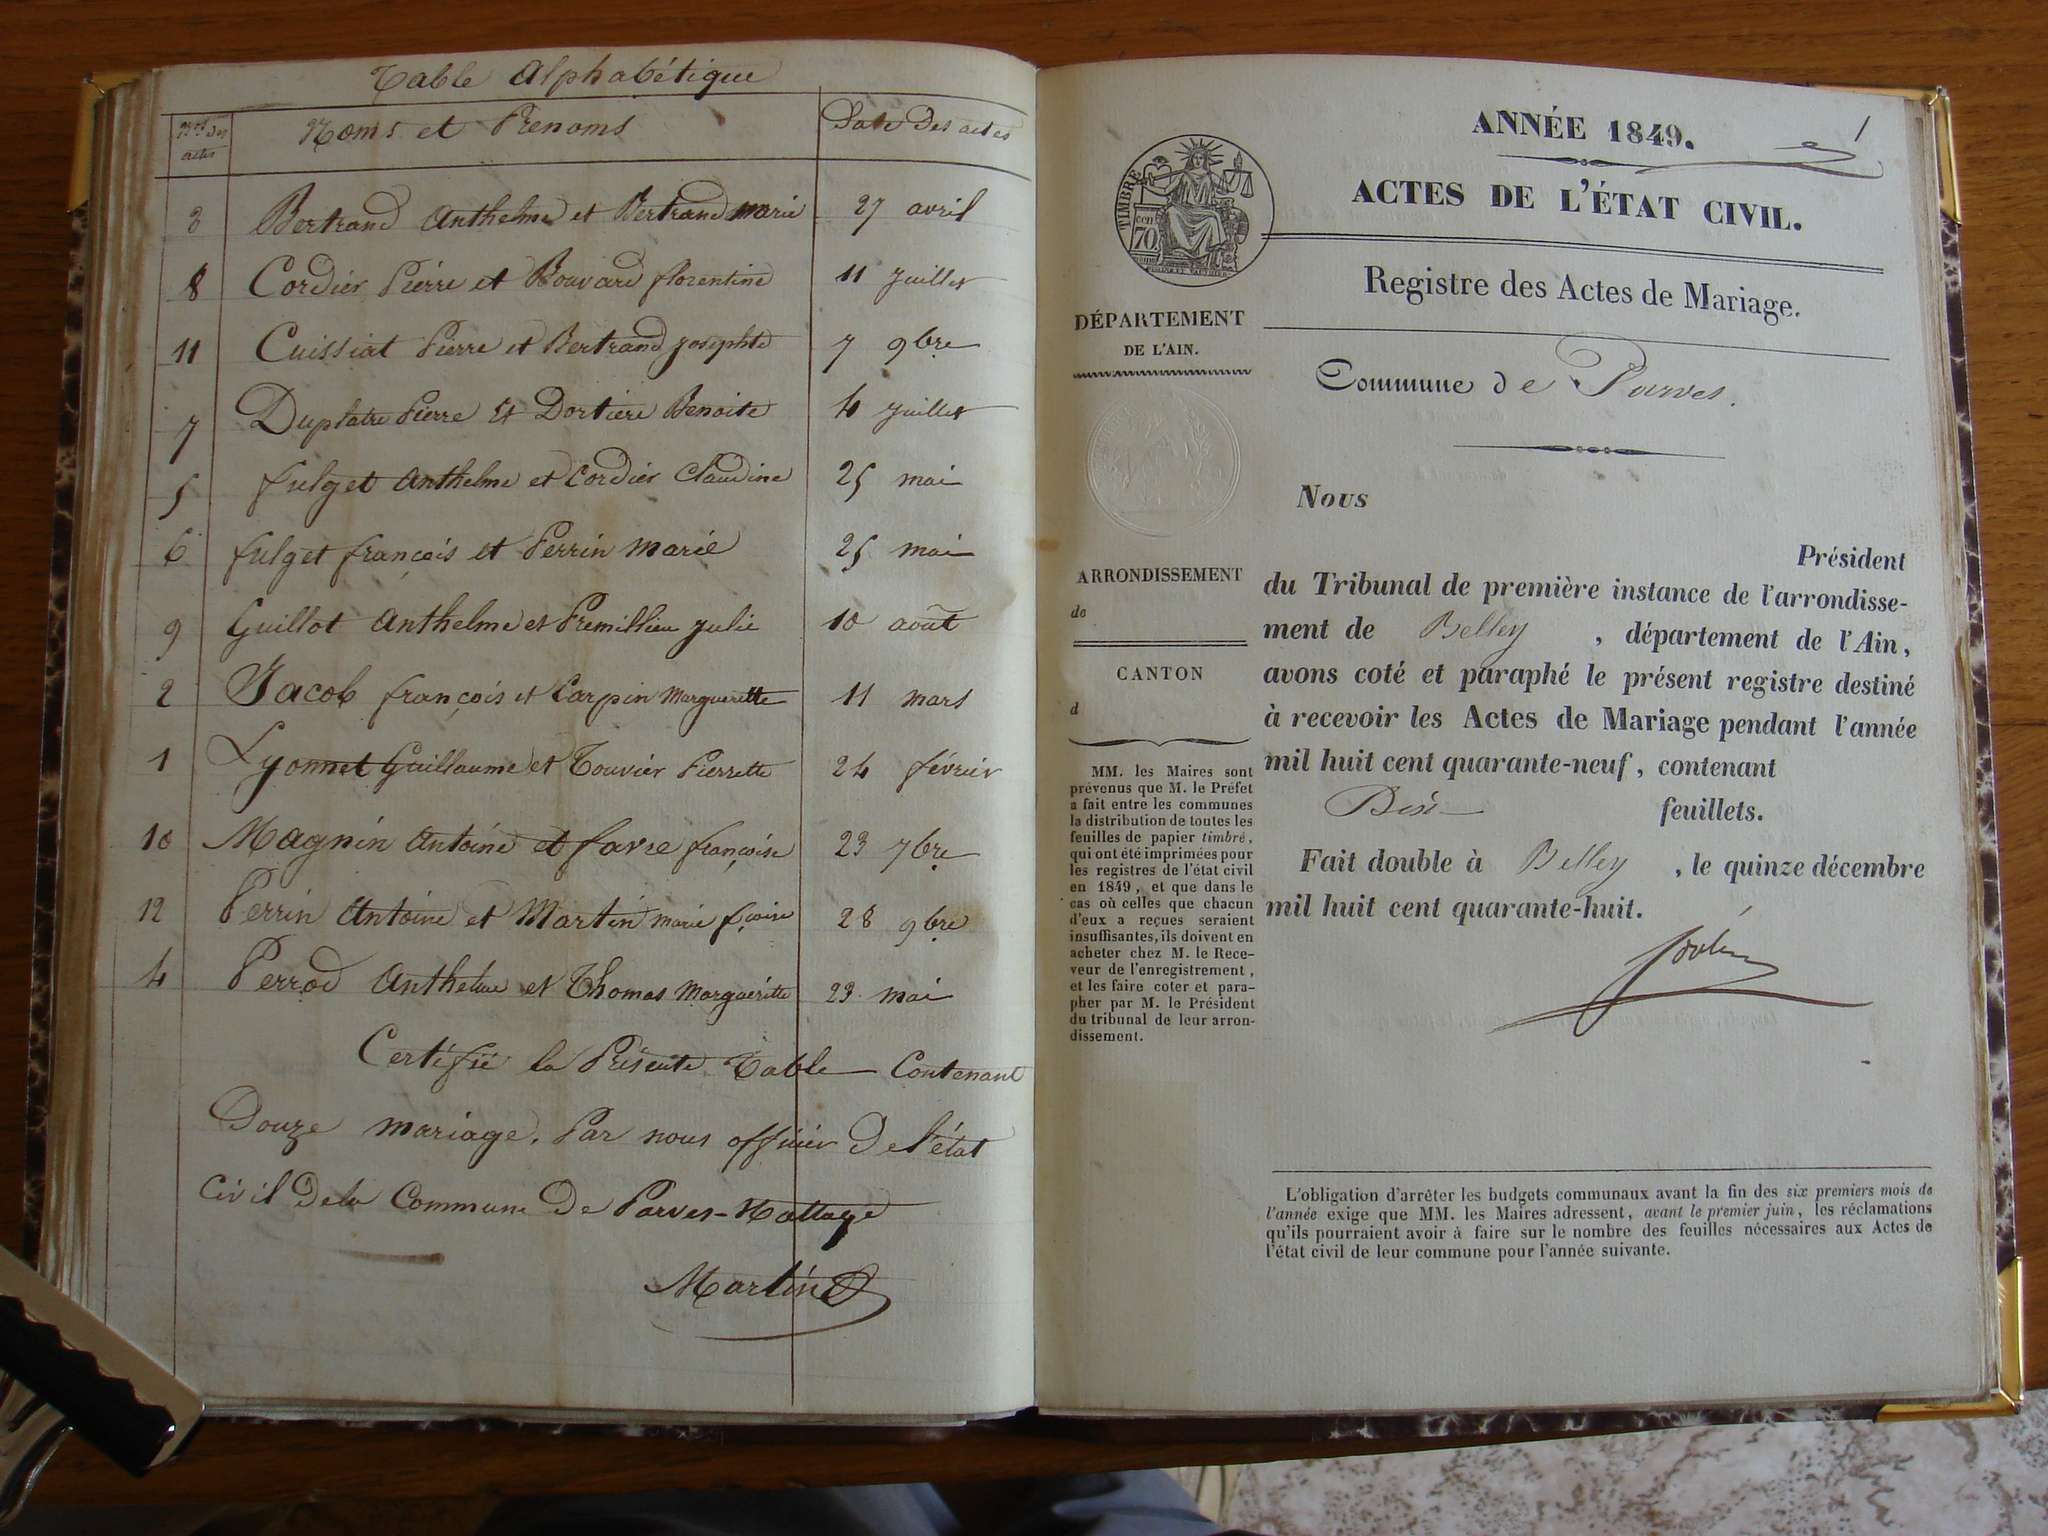 Table Alphabétique
Nos des actes Noms et Prenoms Date des actes
3 Bertrand Anthelme et Bertrand marie 27 avril
8 Cordier Pierre et Bouvard florentine 11 Juillet
11 Cuissiat Pierre et Bertrand Josephte 7 9bre
7 Duplatre Pierre Et Dortiere Benoite 4 Juillet
5 fulget Anthelme et Cordier Claudine 25 mai
6 fulget françois et Perrin marie 25 mai
9 Guillot Anthelme et Premillieu Julie 10 août
2 Jacob françois et Carpin Marguerette 11 mars
1 Lyonnet Guillaume et Touvier Pierrette 24 février
10 Magnin Antoine et favre françoise 23 7bre
12 Perrin Antoine et Martin marie fçoise 28 9bre
4 Perrod Anthelme et Thomas Marguerite 23 mai
Certifié la Présente Table Contenant
Douze mariage, Par nous officier De l'état
Civil Dela Commune De Parves-Nattage
Martin
1
ANNÉE 1849.
ACTES DE L'ÉTAT CIVIL.
TIMBRE
cen
70
Registre des Actes de Mariage.
DÉPARTEMENT
DE L'AIN.
Commune de Parves.
Nous
Président
du Tribunal de première instance de l'arrondisse-
ment de Belley, département de l'Ain,
avons coté et paraphé le présent registre destiné
à recevoir les Actes de Mariage pendant l'année
mil huit cent quarante-neuf, contenant
Dix feuillets.
Fait double à Belley, le quinze décembre
mil huit cent quarante-huit.
ARRONDISSEMENT
de
CANTON
d
MM. les Maires sont
prévenus que M. le Préfet
a fait entre les communes
la distribution de toutes les
feuilles de papier timbré,
qui ont été imprimées pour
les registres de l'état civil
en 1849, et que dans le
cas où celles que chacun
d'eux a reçues seraient
insuffisantes, ils doivent en
acheter chez M. le Rece-
veur de l'enregistrement,
et les faire coter et para-
pher par M. le Président
du tribunal de leur arron-
dissement.
L'obligation d'arrêter les budgets communaux avant la fin des six premiers mois de
l'année exige que MM. les Maires adressent, avant le premier juin, les réclamations
qu'ils pourraient avoir à faire sur le nombre des feuilles nécessaires aux Actes de
l'état civil de leur commune pour l'année suivante.